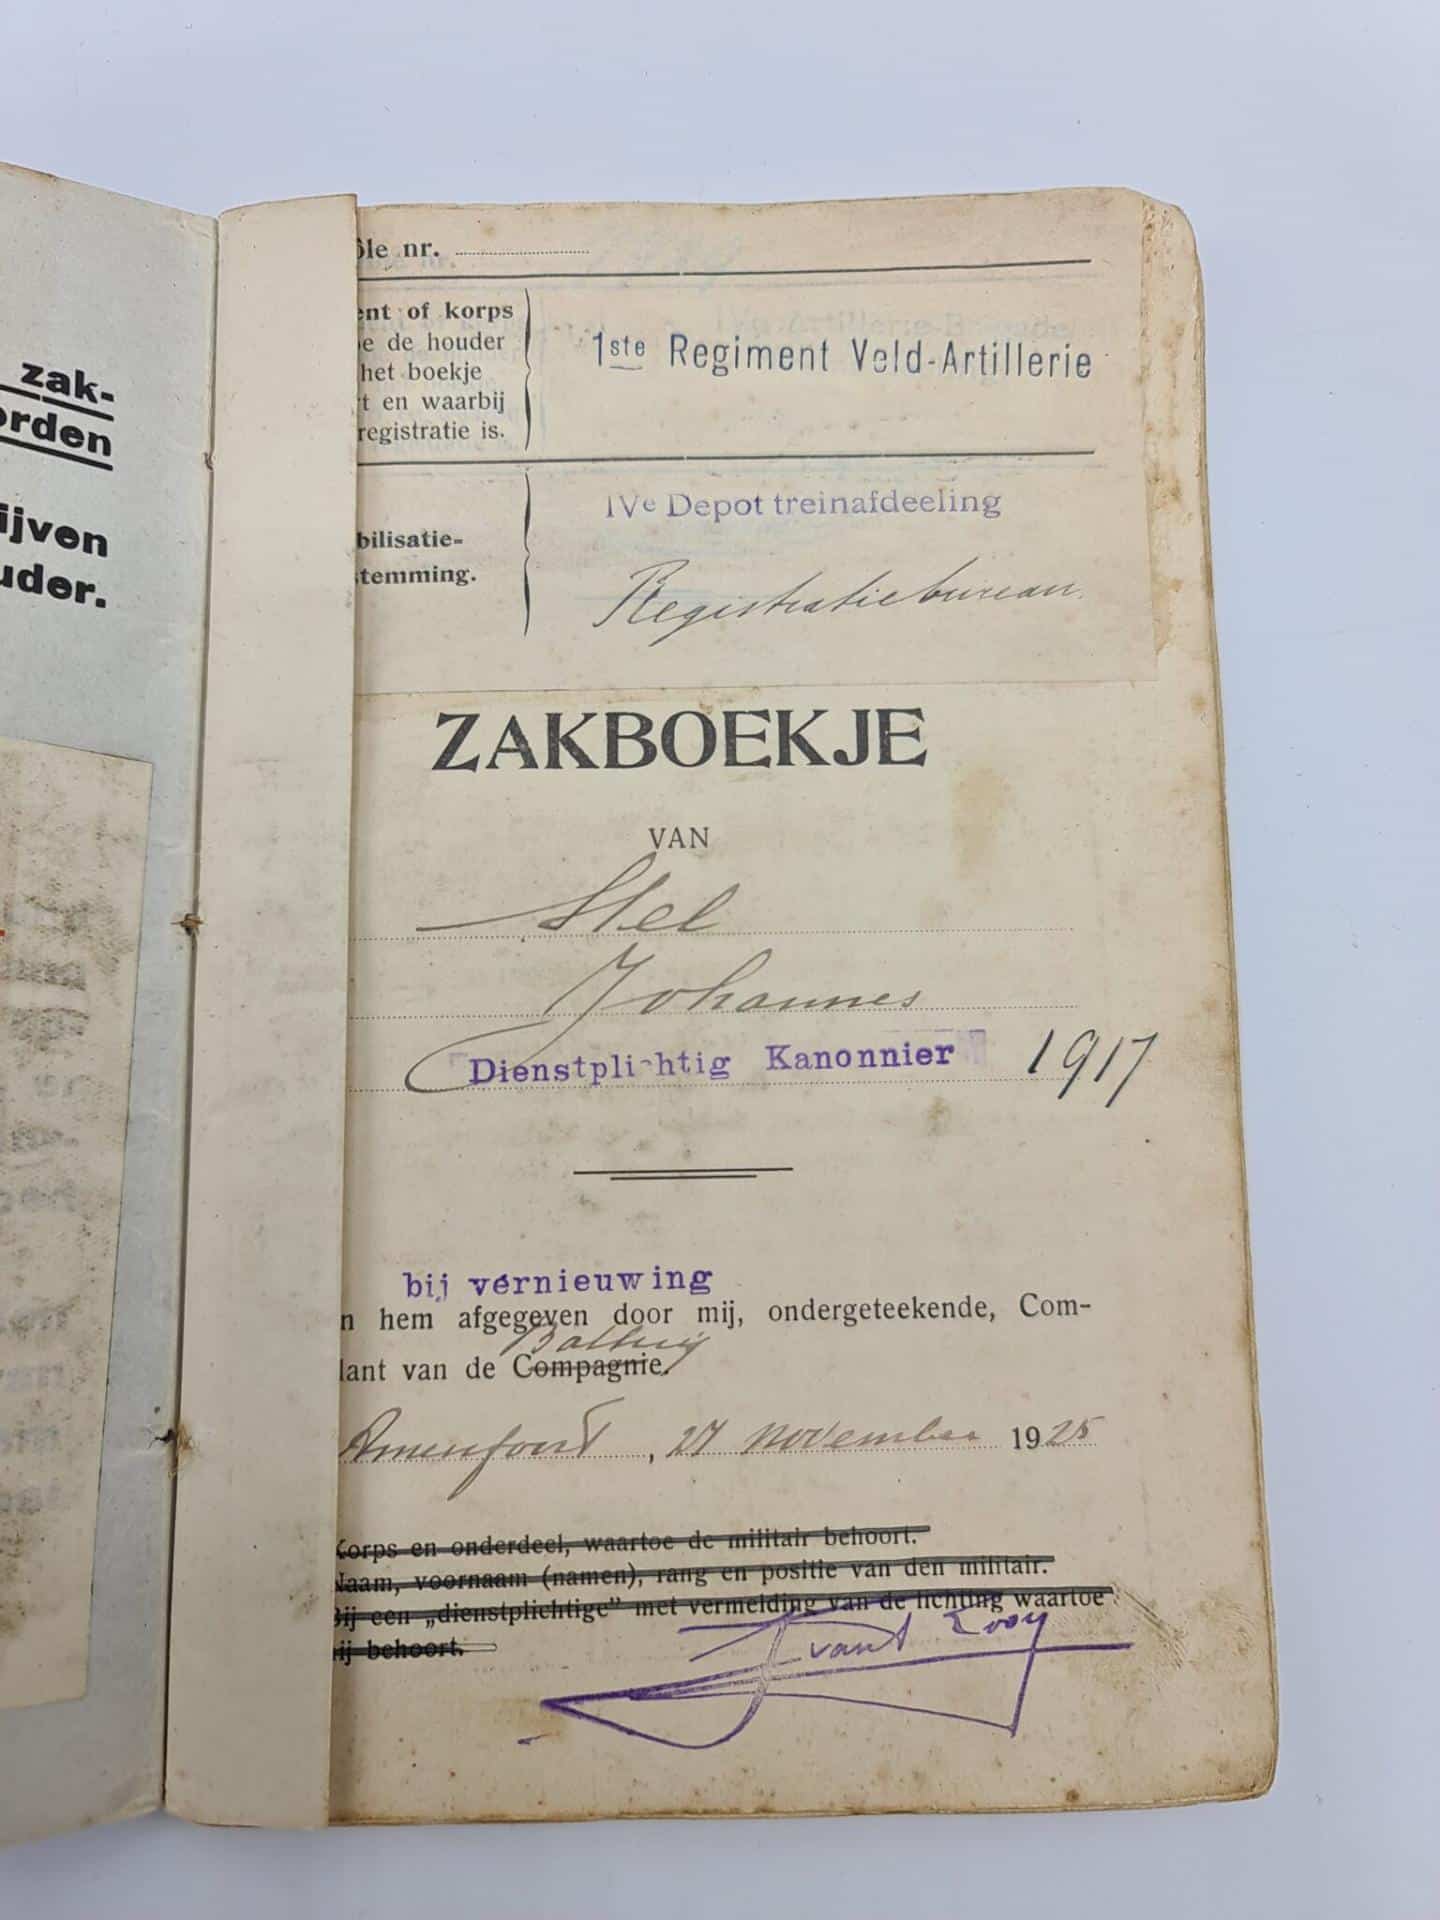 zak-
orden
ijven
uder.
ôle nr.
ent of korps
e de houder
het boekje
t en waarbij
registratie is.
1ste Regiment Veld-Artillerie
bilisatie-
stemming.
IVe Depot treinafdeeling
Registratiebureau.
ZAKBOEKJE
VAN
Stel
Johannes
Dienstplichtig Kanonnier 1917
bij vernieuwing
n hem afgegeven door mij, ondergeteekende, Com-
Batterij
lant van de Compagnie.
Amersfoort, 27 November 1925
Korps en onderdeel, waartoe de militair behoort.
Naam, voornaam (namen), rang en positie van den militair.
Bij een „dienstplichtige" met vermelding van de lichting waartoe
hij behoort.